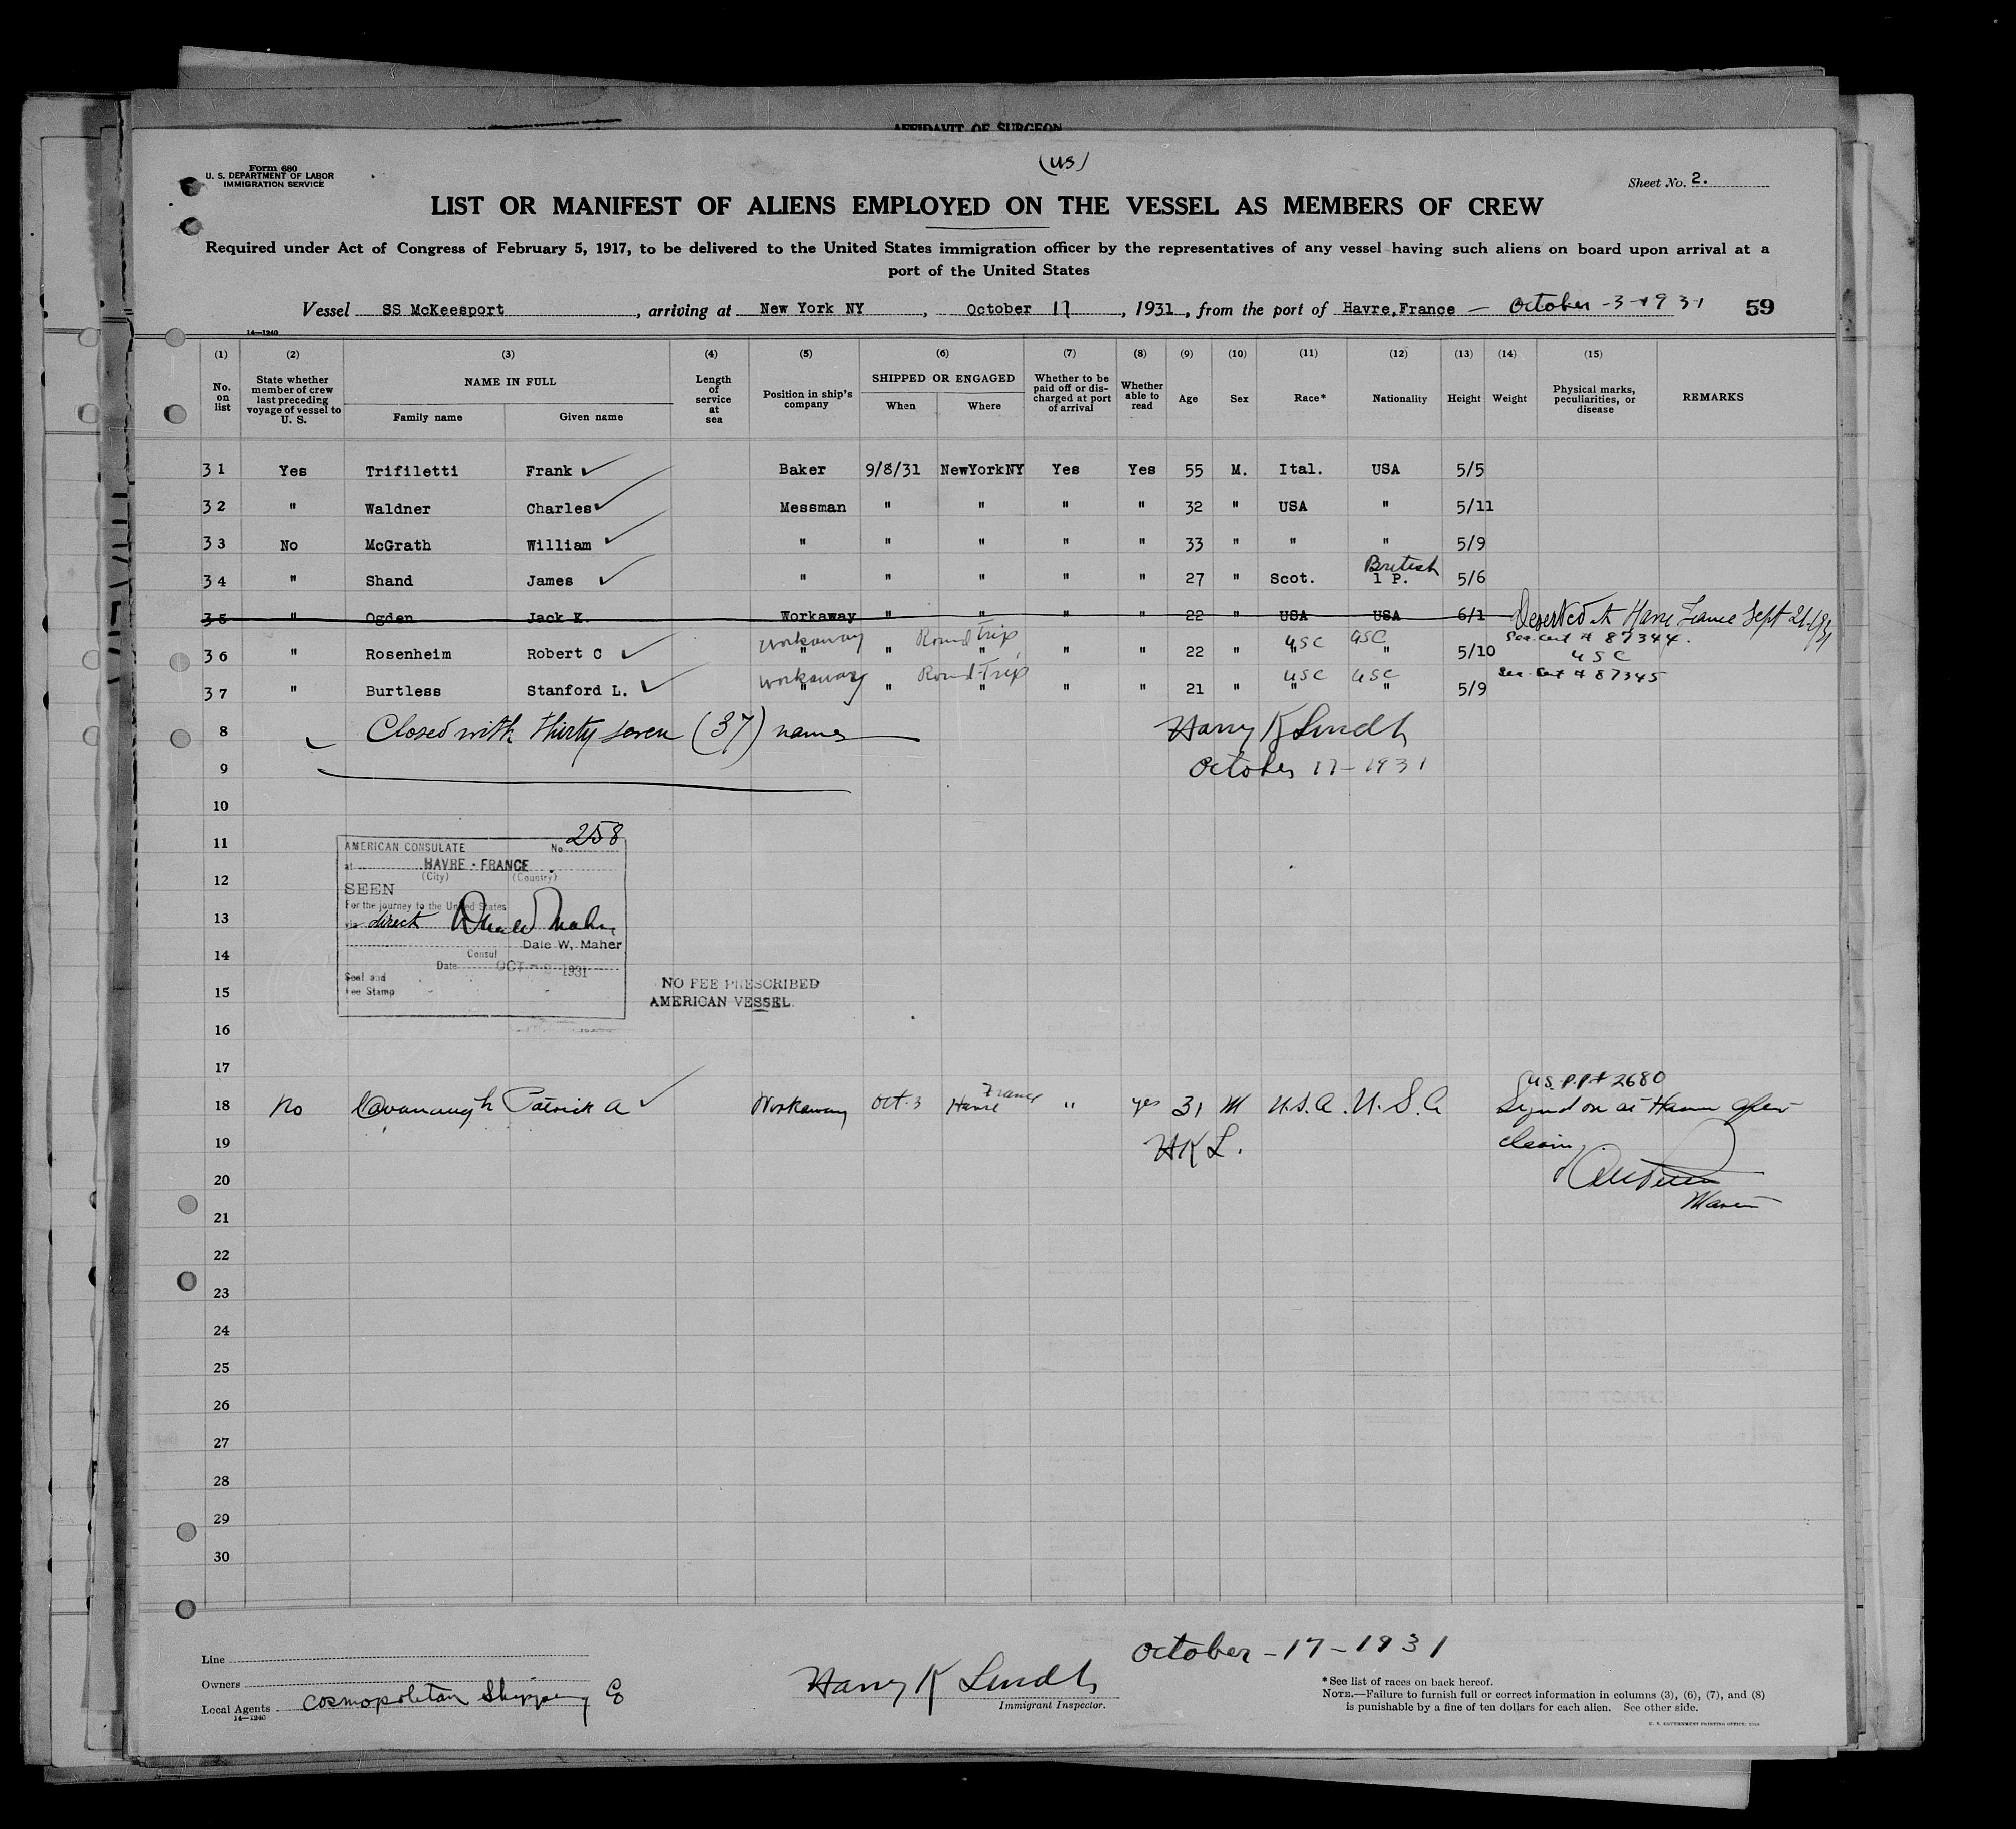 AFFIDAVIT OF SURGEON
(US)
Form 680
U. S. DEPARTMENT OF LABOR
IMMIGRATION SERVICE
Sheet No. 2.
LIST OR MANIFEST OF ALIENS EMPLOYED ON THE VESSEL AS MEMBERS OF CREW
Required under Act of Congress of February 5, 1917, to be delivered to the United States immigration officer by the representatives of any vessel having such aliens on board upon arrival at a
port of the United States
Vessel SS McKeesport, arriving at New York NY, October 17, 1931, from the port of Havre,France — October -3-1931 59
14—1240
(1) (2) (3) (4) (5) (6) (7) (8) (9) (10) (11) (12) (13) (14) (15)
No. on list State whether member of crew last preceding voyage of vessel to U. S. NAME IN FULL Length of service at sea Position in ship's company SHIPPED OR ENGAGED Whether to be paid off or discharged at port of arrival Whether able to read Age Sex Race* Nationality Height Weight Physical marks, peculiarities, or disease REMARKS
Family name Given name When Where
31 Yes Trifiletti Frank ✓ Baker 9/8/31 NewYorkNY Yes Yes 55 M. Ital. USA 5/5
32 " Waldner Charles ✓ Messman " " " " 32 " USA " 5/11
33 No McGrath William ✓ " " " " " 33 " " " 5/9
34 " Shand James ✓ " " " " " 27 " Scot. British 1 P. 5/6
35 " Ogden Jack K. Workaway " " " " 22 " USA USA 6/1 Deserted At Havre France Sept 21-1931
36 " Rosenheim Robert C ✓ Workaway " " Round Trip " " " 22 " USC " USC " 5/10 Sea. cert # 87344.
USC
37 " Burtless Stanford L. ✓ Workaway " " Round-Trip " " " 21 " USC " USC " 5/9 Sea. Cert # 87345
8 Closed with thirty seven (37) names Harry K Lindh
9 October 17-1931
10
11
AMERICAN CONSULATE No. 258
at HAVRE - FRANCE
(City) (Country)
12
SEEN
For the journey to the United States
13
via direct
Dale W. Maher
14
Consul
Date OCT 1931
Seal and
Fee Stamp
15
NO FEE PRESCRIBED
AMERICAN VESSEL.
16
17
U.S. P.P.# 2680
18 No Cavanaugh Patrick A ✓ Workaway Oct. 3 Havre France " yes 31 M U.S.A. U.S.A Signed on at Havre after
19 HKL. clearing
20
21 Master
22
23
24
25
26
27
28
29
30
October-17-1931
Line
Owners
Local Agents Cosmopolitan Shipping Co
14—1240
Harry K Lindh
Immigrant Inspector.
*See list of races on back hereof.
NOTE.—Failure to furnish full or correct information in columns (3), (6), (7), and (8)
is punishable by a fine of ten dollars for each alien. See other side.
U. S. GOVERNMENT PRINTING OFFICE: